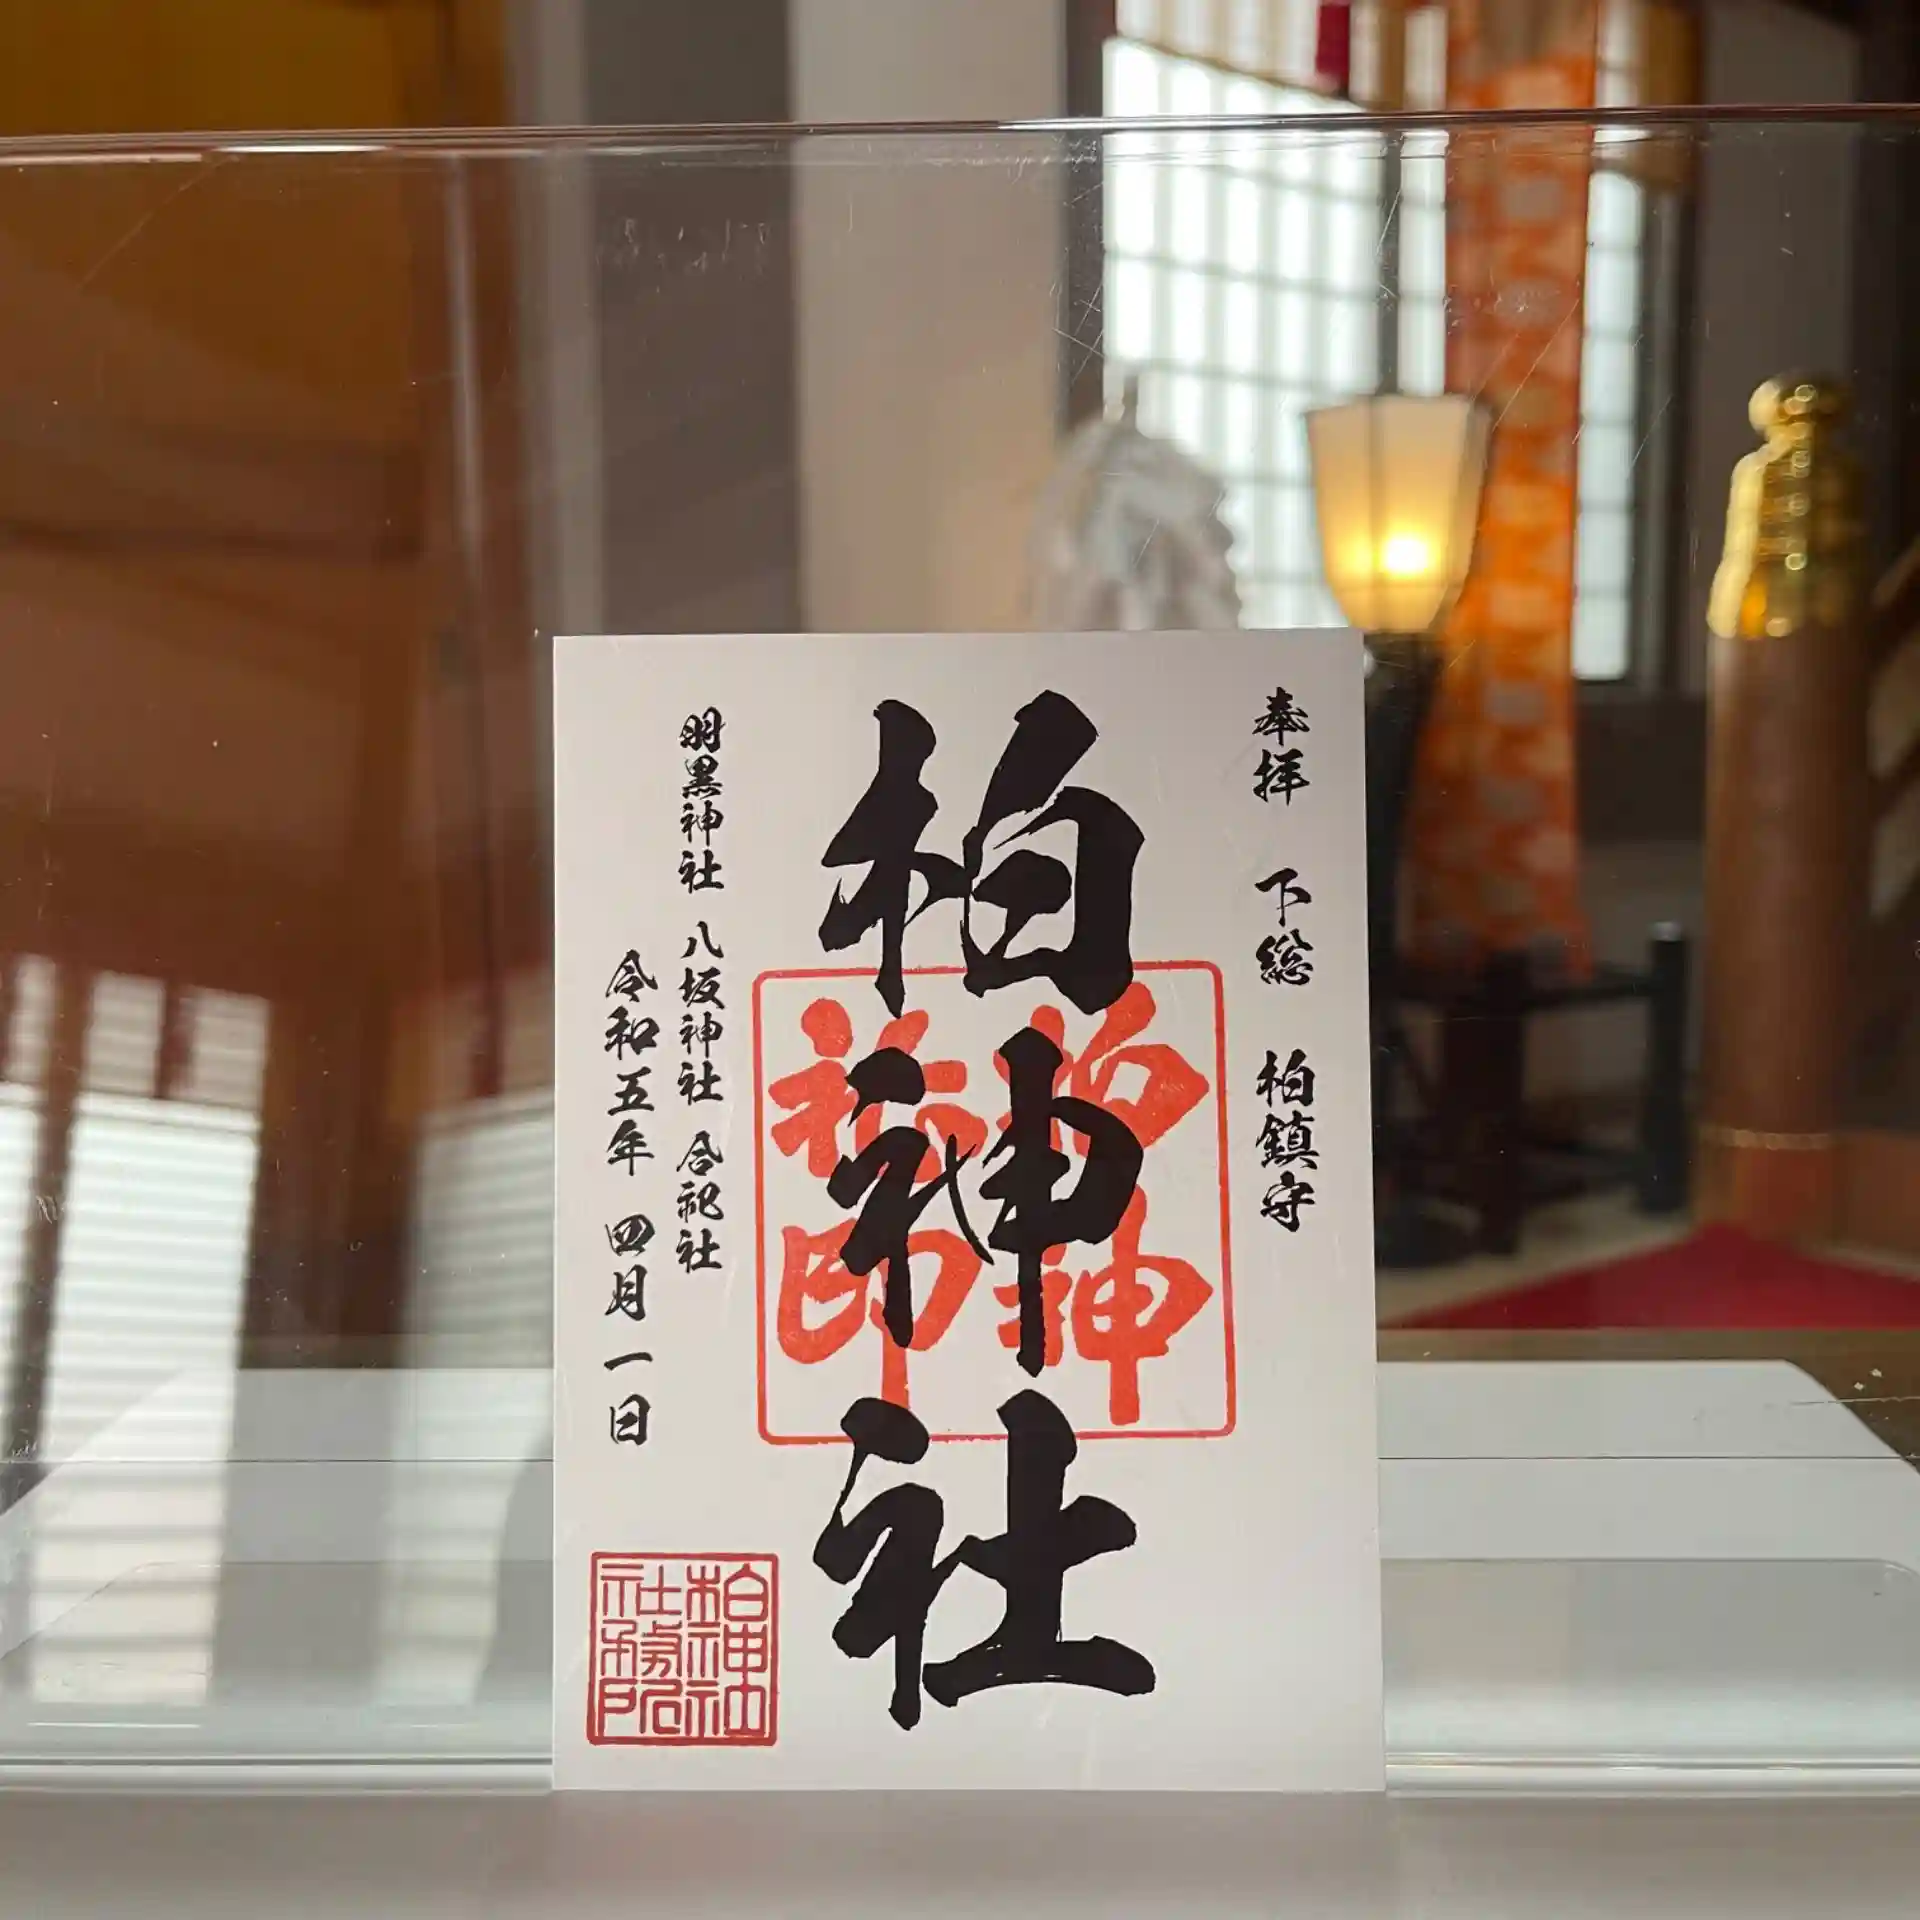 奉拝 下総 柏鎮守
柏神社
羽黒神社 八坂神社 合祀社
令和五年 四月一日
柏神社
社務所